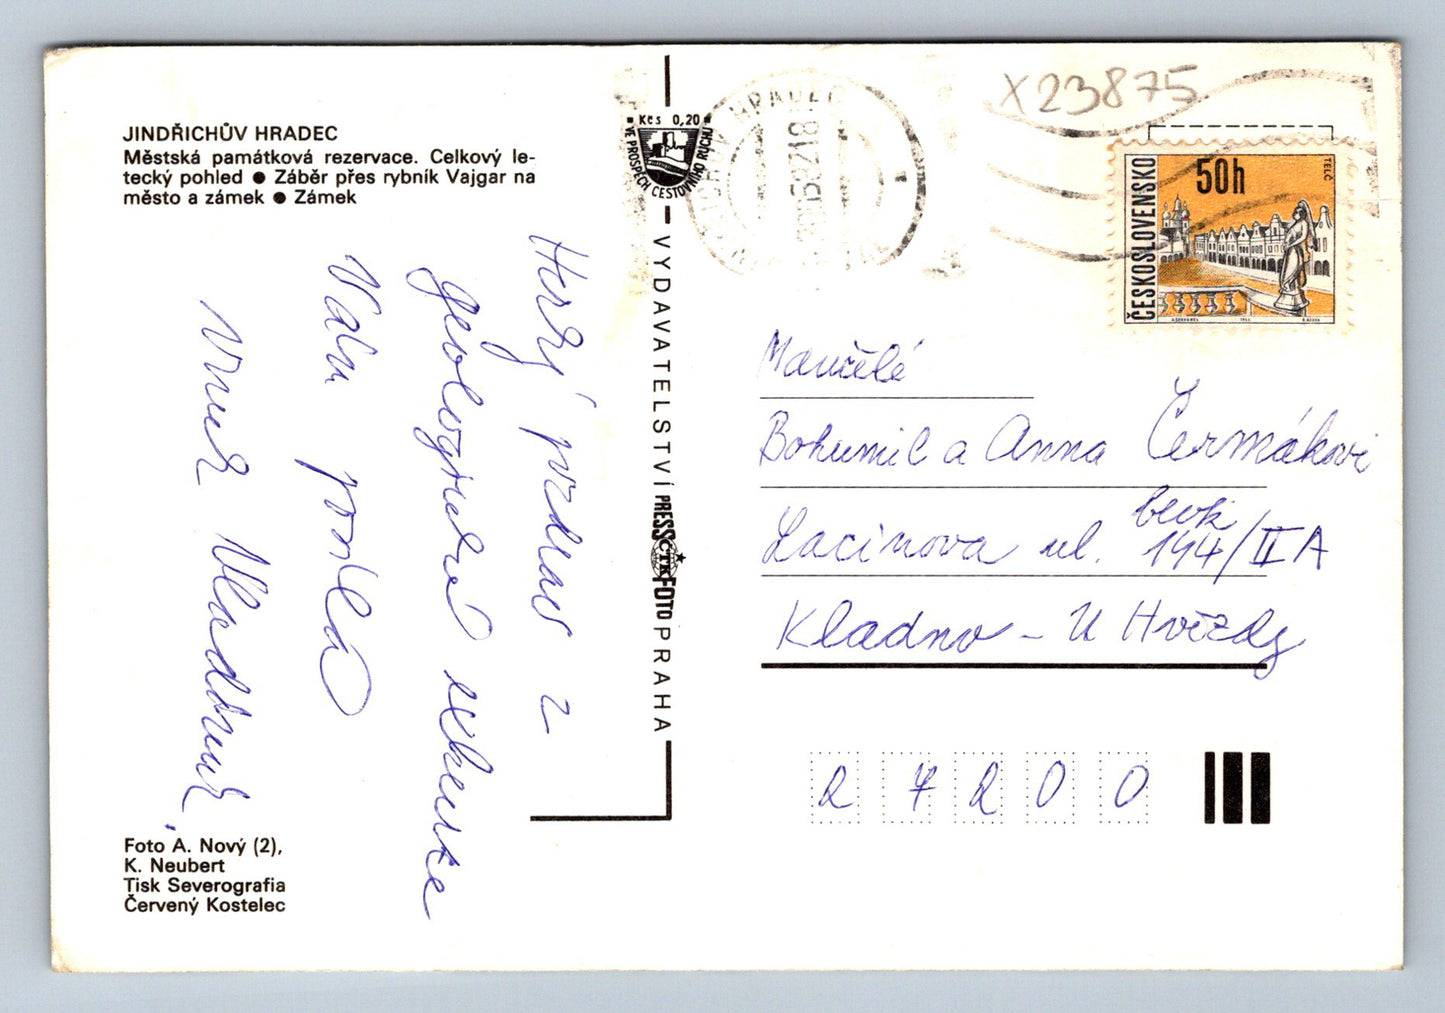 JINDŘICHŮV HRADEC
Městská památková rezervace. Celkový le-
tecký pohled ● Záběr přes rybník Vajgar na
město a zámek ● Zámek
Hezký pozdrav z
geologické exkurze
Vám posílá
vnuk Vladimír
Foto A. Nový (2),
K. Neubert
Tisk Severografia
Červený Kostelec
Kčs 0,20
VE PROSPĚCH CESTOVNÍHO RUCHU
VYDAVATELSTVÍ PRESSFOTO PRAHA
ČTK
HRADEC
X23875
ČESKOSLOVENSKO
50h
TELČ
Manželé
Bohumil a Anna Čermákovi
Lacinova ul. blok
194/II A
Kladno - U Hvězdy
27200